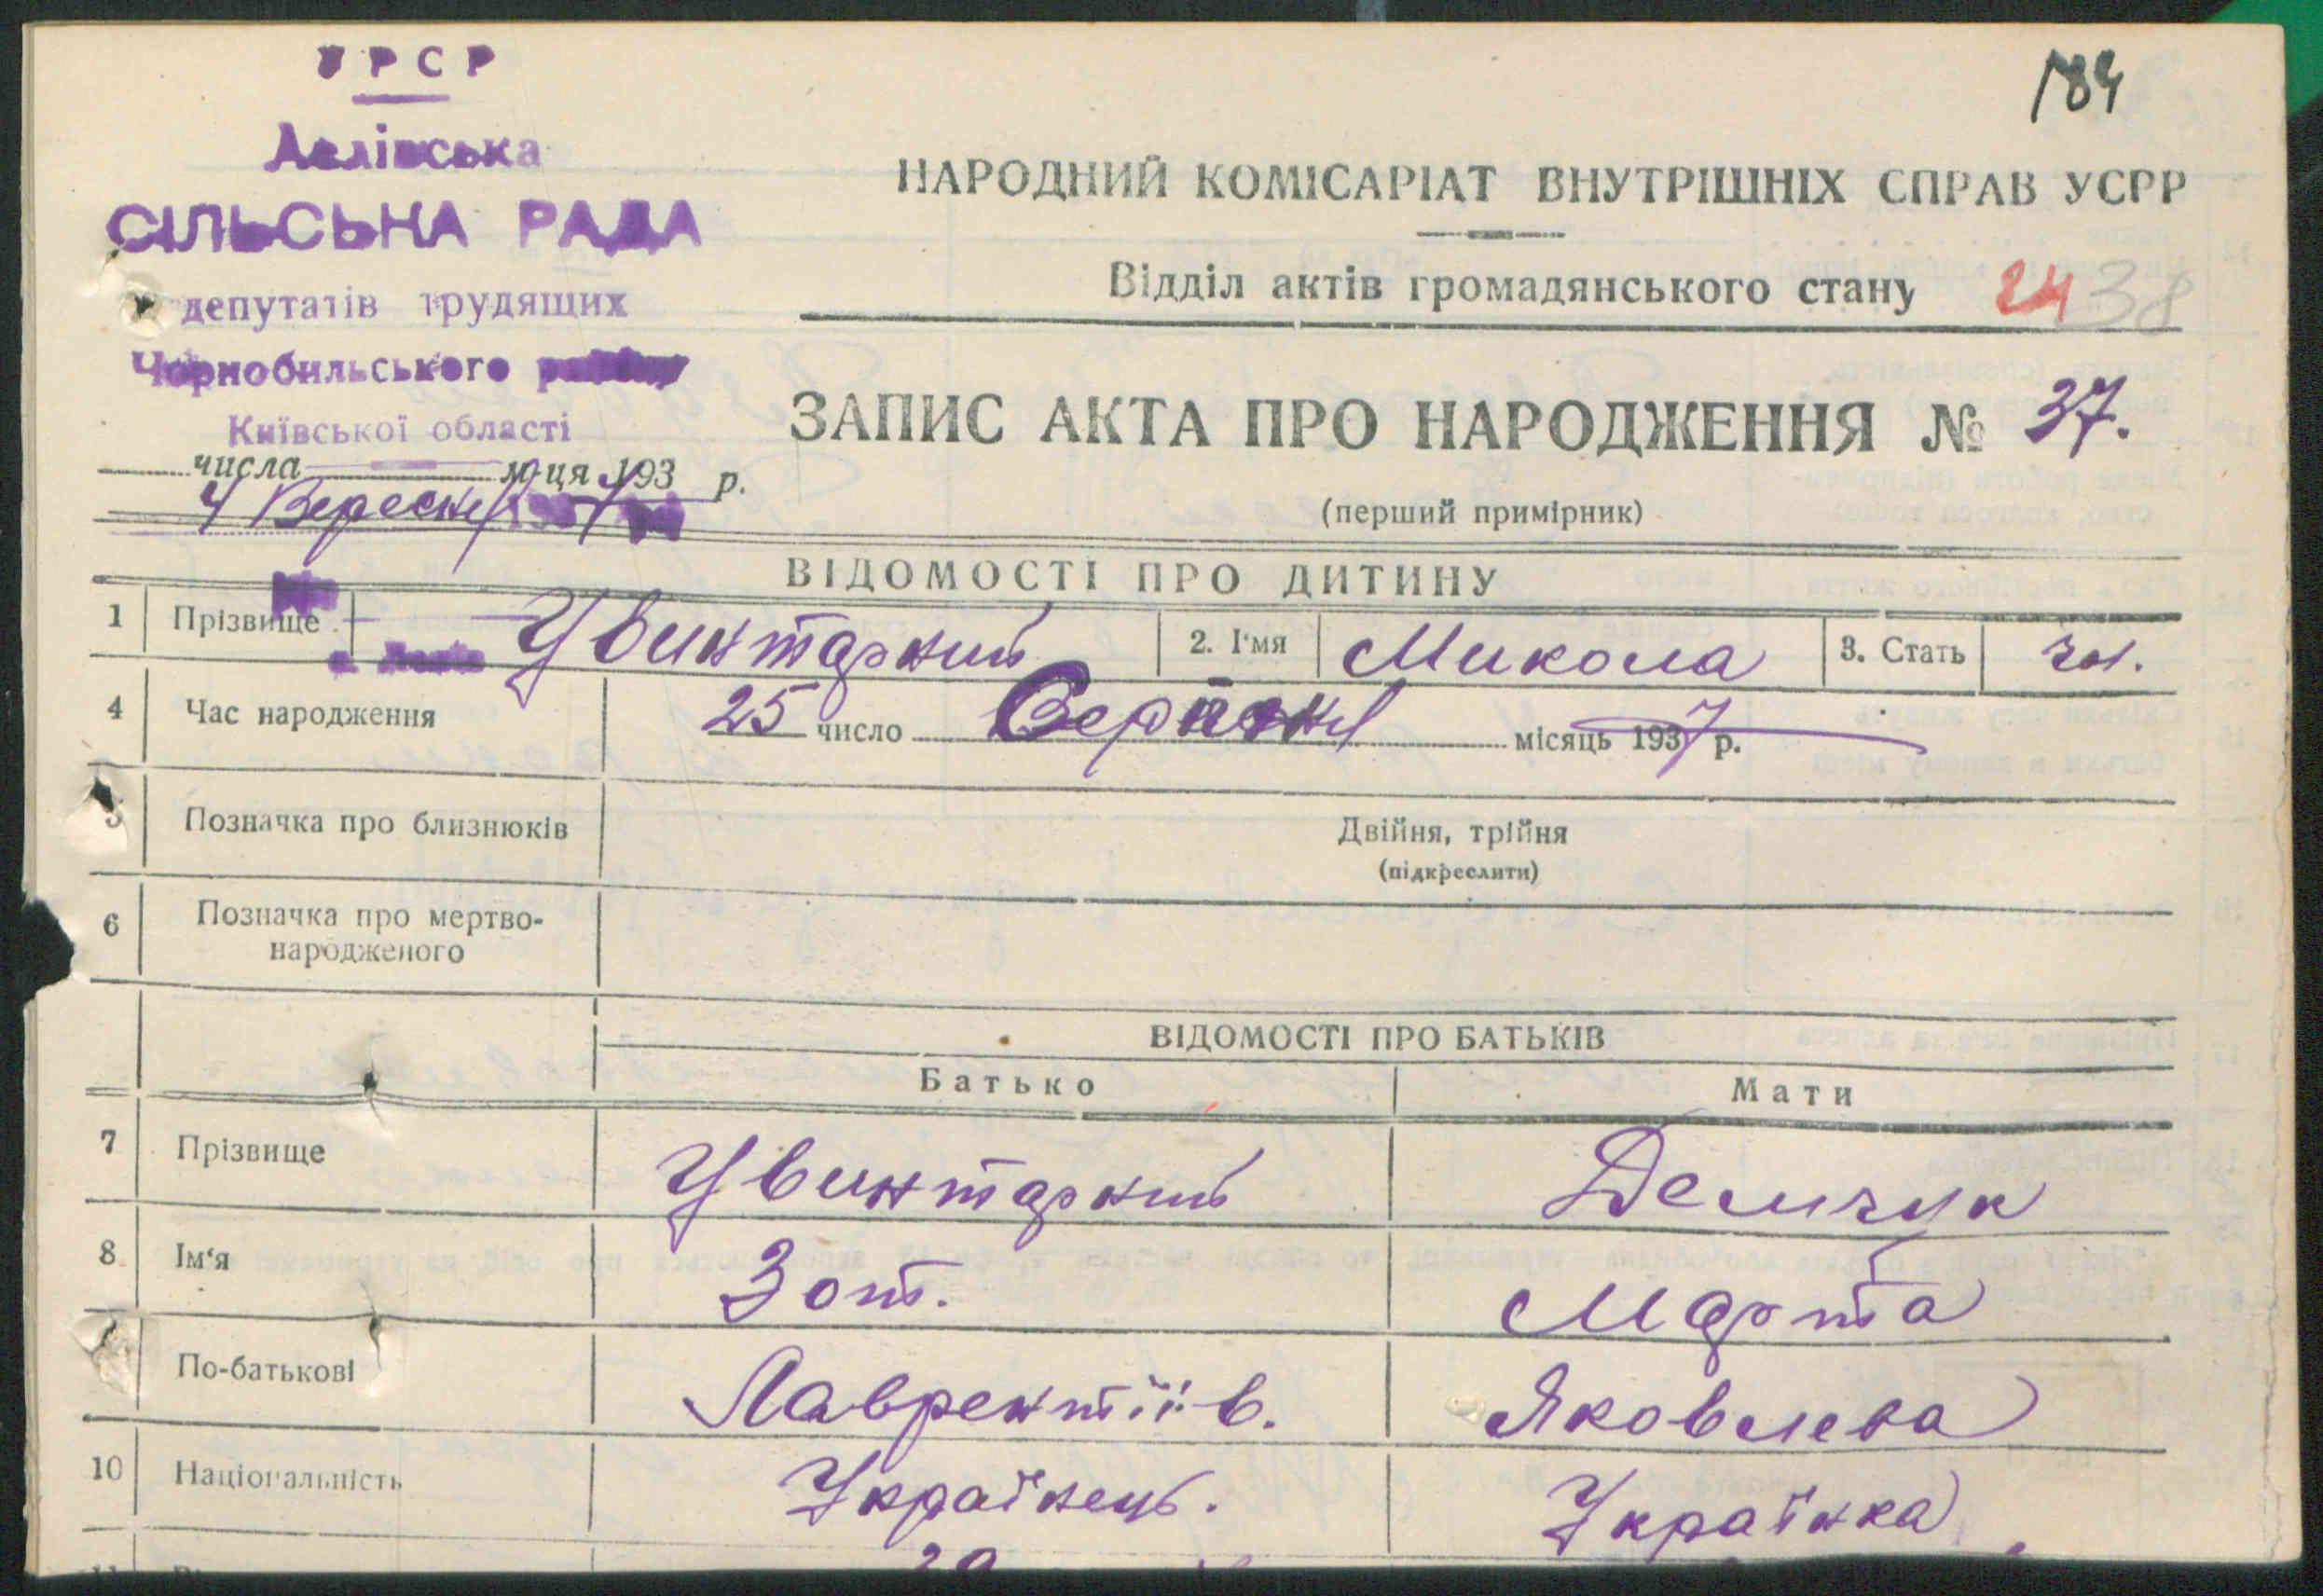 УРСР
СІЛЬСЬКА РАДА
депутатів трудящих
Чорнобильського району
Київської області
числа м-ця 193 р.
4 Вересня
184
НАРОДНИЙ КОМІСАРІАТ ВНУТРІШНІХ СПРАВ УСРР
Відділ актів громадянського стану 24 38
ЗАПИС АКТА ПРО НАРОДЖЕННЯ № 37.
(перший примірник)
ВІДОМОСТІ ПРО ДИТИНУ
1 Прізвище Цвинтарний 2. І'мя Микола 3. Стать чол.
4 Час народження 25 число Серпня місяць 1937 р.
5 Позначка про близнюків Двійня, трійня
(підкреслити)
6 Позначка про мертво-
народженого
ВІДОМОСТІ ПРО БАТЬКІВ
Батько Мати
7 Прізвище Цвинтарний Демчук
8 Ім'я Зот. Марта
По-батькові Лаврентіїв. Яковлева
10 Національність Українець. Українка